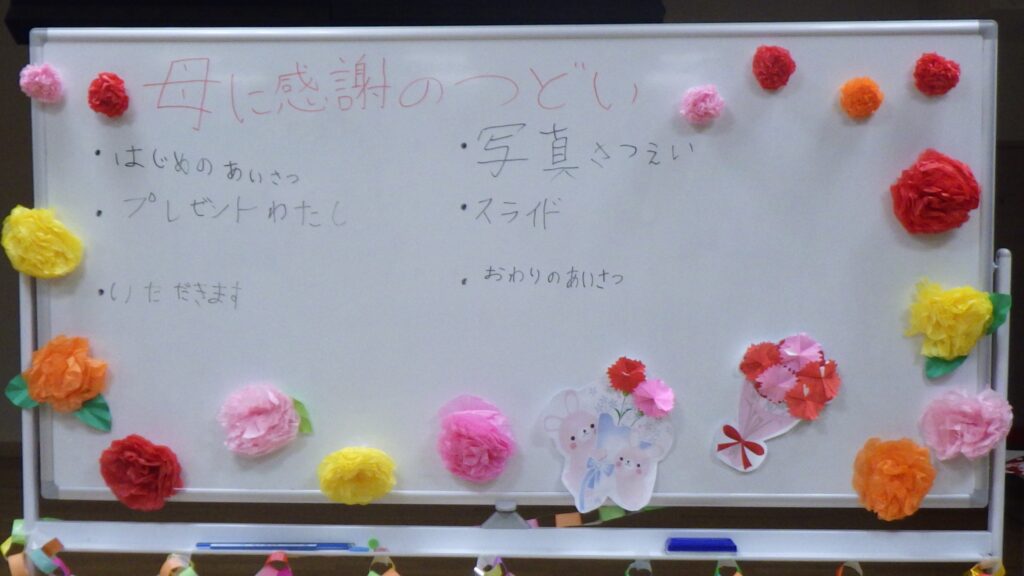 母に感謝のつどい
・はじめのあいさつ
・プレゼントわたし
・いただきます
・写真さつえい
・スライド
・おわりのあいさつ